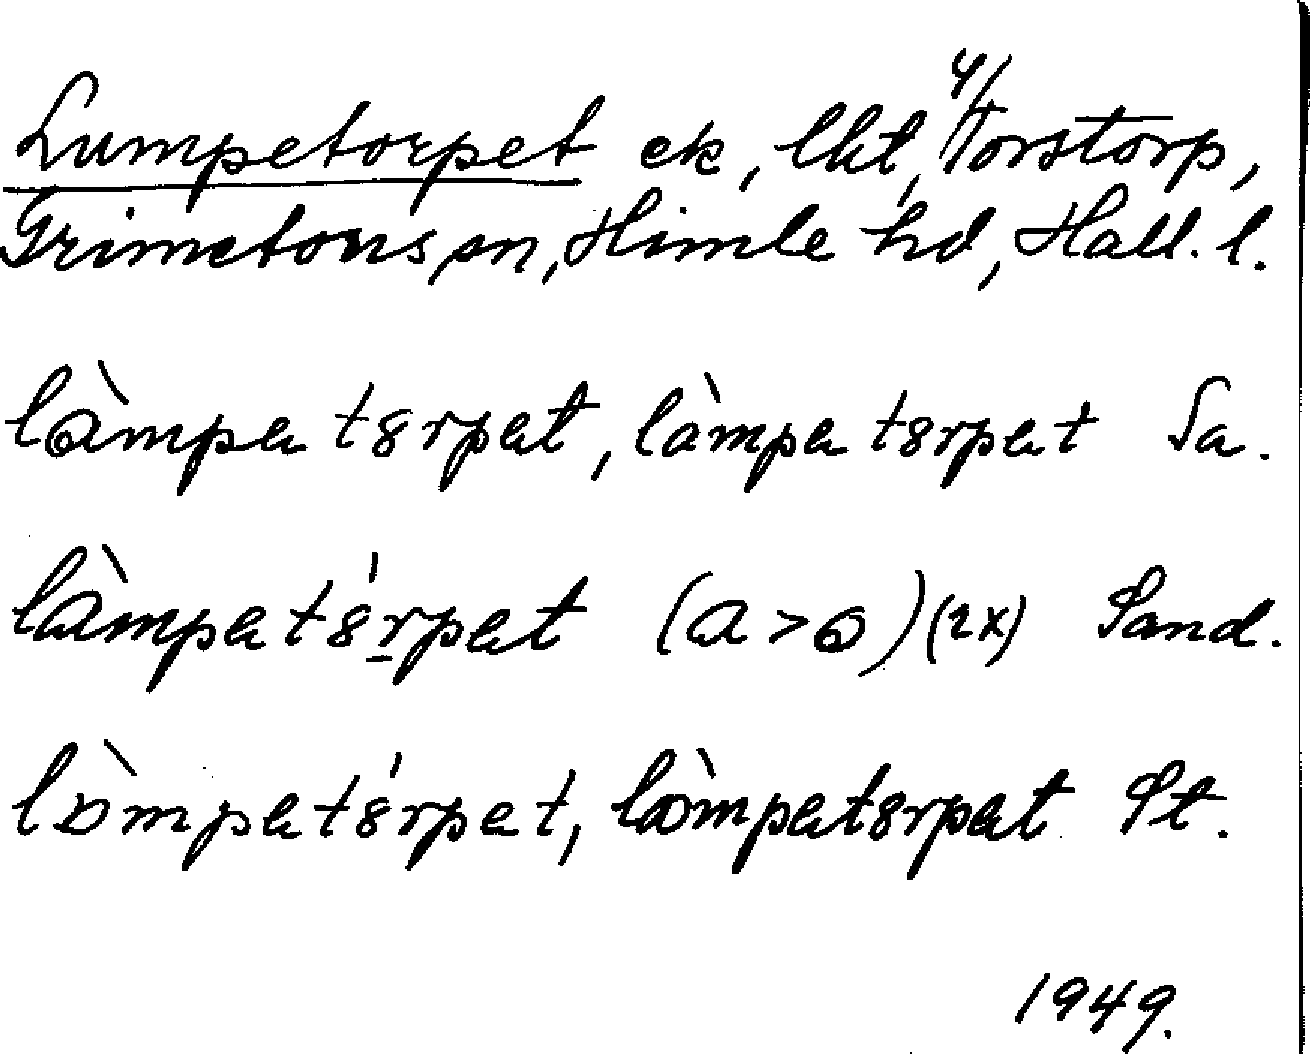 Lumpetorpet ek, lht, 4/ Torstorp,
Grimetons sn, Himle hd, Hall. l.
làmpa tȣrpat, làmpa tȣrpat Sa.
làmpatȣ́rpat (a > ɷ) (2x) Sand.
lòmpatȣ́rpat, lòmpatȣrpat St.
1949.